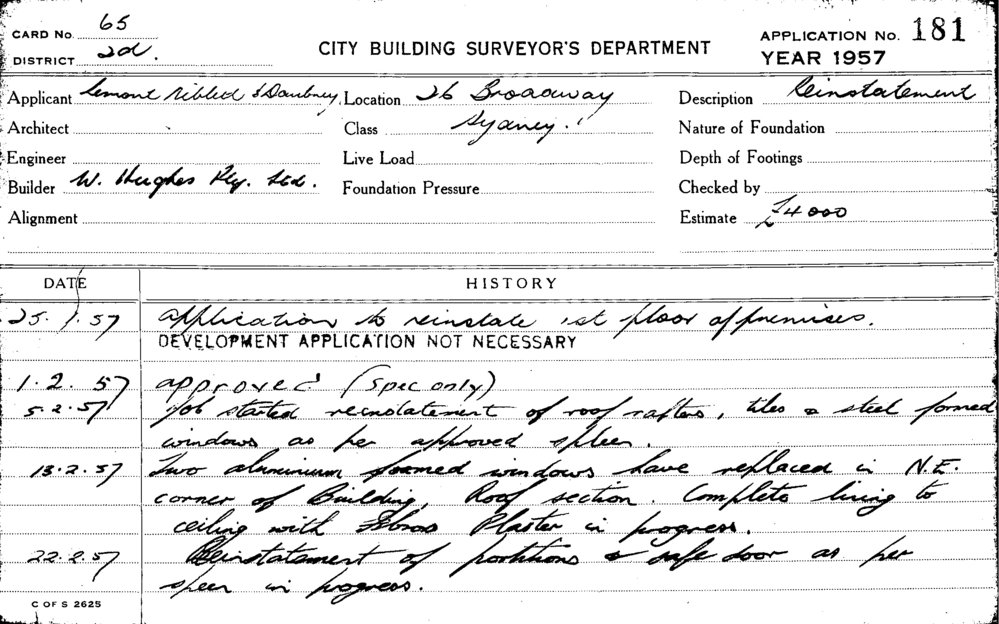 CARD No. 65
DISTRICT 2d.
CITY BUILDING SURVEYOR'S DEPARTMENT
APPLICATION No. 181
YEAR 1957
Applicant & Daubney Location 26 Broadway Description Reinstatement
Architect Class Sydney. Nature of Foundation
Engineer Live Load Depth of Footings
Builder W. Hughes Pty. Ltd. Foundation Pressure Checked by
Alignment Estimate £4000
DATE HISTORY
25.1.57 Application to reinstate 1st floor of premises.
DEVELOPMENT APPLICATION NOT NECESSARY
1.2.57 approved (Spec only)
5.2.57 Job started reinstatement of roof rafters, tiles & steel framed
windows as per approved
13.2.57 Two aluminium framed windows have replaced in N.E.
corner of Building, Roof section. Complete lining to
ceiling with Fibrous Plaster in progress.
22.2.57 Reinstatement of partitions & safe door as per
in progress.
C OF S 2625